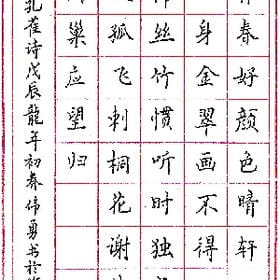 春好颜色晴轩
身金翠画不得
丝竹惯听时独
孤飞刺桐花谢
巢应望归
孔雀诗戊辰龍年初春伟勇书於